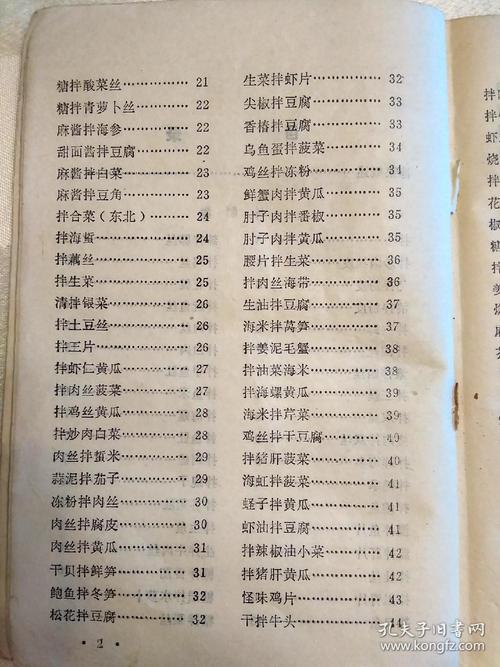 糖拌酸菜丝…………… 21
糖拌青萝卜丝………… 22
麻酱拌海参…………… 22
甜面酱拌豆腐………… 22
麻酱拌白菜…………… 23
麻酱拌豆角…………… 23
拌合菜(东北)……… 24
拌海蜇………………… 24
拌藕丝………………… 25
拌生菜………………… 25
清拌银菜……………… 26
拌土豆丝……………… 26
拌三片………………… 26
拌虾仁黄瓜…………… 27
拌肉丝菠菜…………… 27
拌鸡丝黄瓜…………… 28
拌炒肉白菜…………… 28
肉丝拌蜇米…………… 29
蒜泥拌茄子…………… 29
冻粉拌肉丝…………… 30
肉丝拌腐皮…………… 30
肉丝拌黄瓜…………… 31
干贝拌鲜笋…………… 31
鲍鱼拌冬笋…………… 32
松花拌豆腐…………… 32
·2·
生菜拌虾片…………… 32
尖椒拌豆腐…………… 33
香椿拌豆腐…………… 33
乌鱼蛋拌菠菜………… 34
鸡丝拌冻粉…………… 34
鲜蟹肉拌黄瓜………… 35
肘子肉拌番椒………… 35
肘子肉拌黄瓜………… 35
腰片拌生菜…………… 36
拌肉丝海带…………… 36
生油拌豆腐…………… 37
海米拌莴笋…………… 37
拌姜泥毛蟹…………… 38
拌油菜海米…………… 38
拌海螺黄瓜…………… 39
海米拌芹菜…………… 39
鸡丝拌干豆腐………… 40
拌猪肝菠菜…………… 40
海虹拌菠菜…………… 41
蛏子拌黄瓜…………… 41
虾油拌豆腐…………… 41
拌辣椒油小菜………… 42
拌猪肝黄瓜…………… 42
怪味鸡片……………… 43
干拌牛头……………… 44
孔夫子旧书网
www.kongfz.com